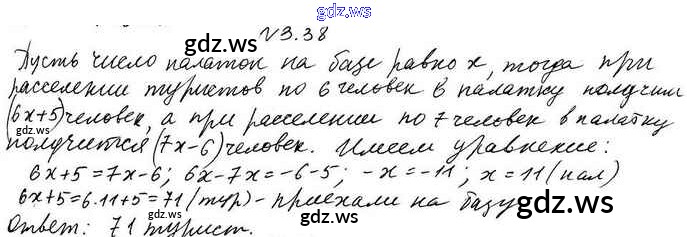 gdz.ws
N3.38
Пусть число палаток на базе равно x, тогда при
расселении туристов по 6 человек в палатку получим
(6x+5) человек, а при расселении по 7 человек в палатку
получится (7x-6) человек. Имеем уравнение:
6x+5=7x-6; 6x-7x=-6-5; -x=-11; x=11 (пал)
6x+5=6.11+5=71 (тур) - приехали на базу
Ответ: 71 турист.
gdz.ws
gdz.ws
gdz.ws
gdz.ws
gdz.ws
gdz.ws
gdz.ws
gdz.ws